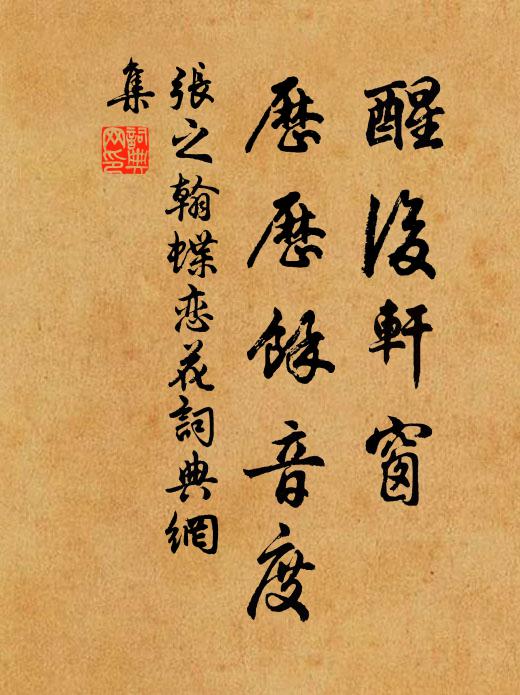 醒後軒窗
歷歷餘音度
張之翰蝶恋花詞典網
集
詞典
网印